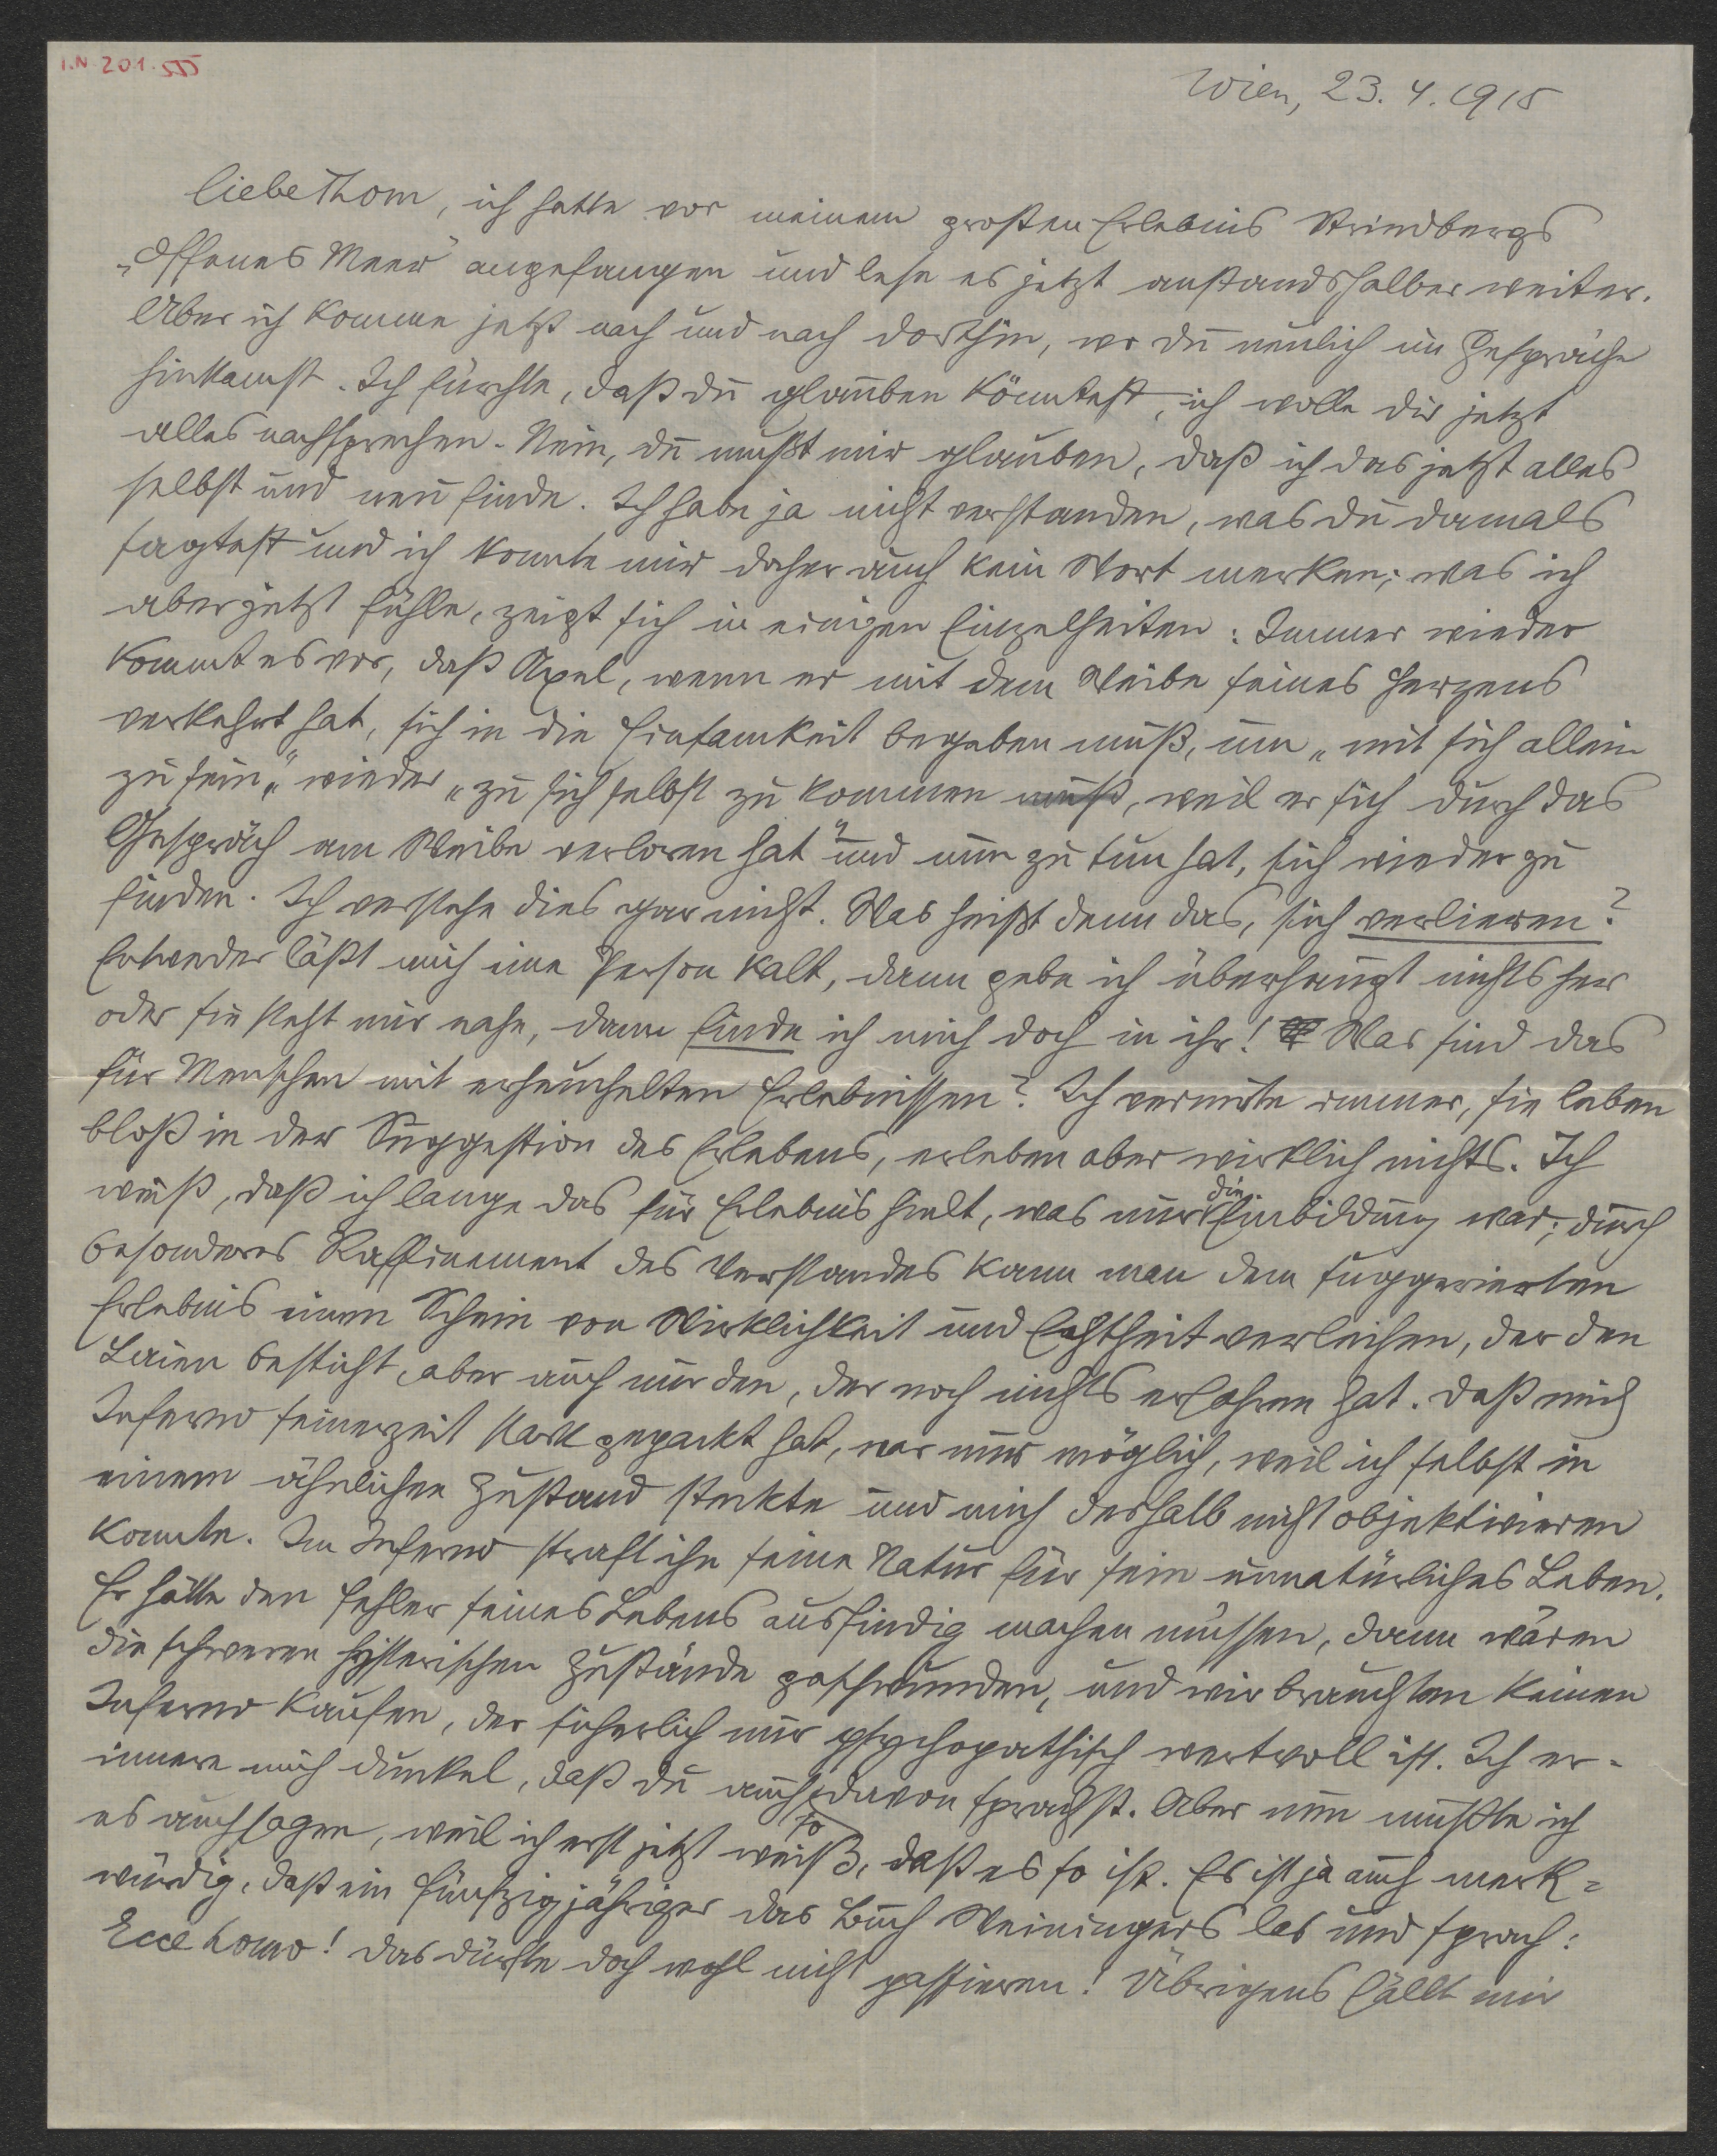 I.N. 201.555
Wien, 23. 4. 1915
Liebe Thom, ich hatte vor meinem großen Erlebnis Strindbergs
„Offenes Meer“ angefangen und lese es jetzt anstandshalber weiter.
Aber ich komme jetzt nach und nach dorthin, wo du neulich im Gespräche
hinkamst. Ich fürchte, daß du glauben könntest, ich wolle dir jetzt
alles nachsprechen. Nein, du mußt mir glauben, daß ich das jetzt alles
selbst und neu finde. Ich habe ja nicht verstanden, was du damals
sagtest und ich konnte mir daher auch kein Wort merken; was ich
aber jetzt fühle, zeigt sich in einigen Einzelheiten: Immer wieder
kommt es vor, daß Axel, wenn er mit dem Weibe seines Herzens
verkehrt hat, sich in die Einsamkeit begeben muß, um „mit sich allein
zu sein,“ wieder „zu sich selbst zu kommen muß, weil er sich durch das
Gespräch am Weibe verloren hat“ und nun zu tun hat, sich wieder zu
finden. Ich verstehe dies gar nicht. Was heißt denn das, sich verlieren?
Entweder läßt mich eine Person kalt, dann gebe ich überhaupt nichts her
oder sie steht mir nahe, dann finde ich mich doch in ihr! Was sind das
für Menschen mit erheuchelten Erlebnissen? Ich vermute immer, sie leben
bloß in der Suggestion des Erlebens, erleben aber wirklich nichts. Ich
weiß, daß ich lange das für Erlebnis hielt, was nur die Einbildung war; durch
besonderes Raffinement des Verstandes kann man dem suggerierten
Erlebnis einen Schein von Wirklichkeit und Echtheit verleihen, der den
Laien besticht, aber auch nur den, der noch nichts erfahren hat. Daß mich
Inferno seinerzeit stark gepackt hat, war nur möglich, weil ich selbst in
einem ähnlichen Zustand steckte und mich deshalb nicht objektivieren
konnte. Im Inferno straft ihn seine Natur für sein unnatürliches Leben.
Er hätte den Fehler seines Lebens ausfindig machen müssen, dann wären
die schweren hysterischen Zustände geschwunden, und wir brauchten keinen
Inferno kaufen, der sicherlich nur psychopathisch wertvoll ist. Ich er-
innere mich dunkel, daß du auch so davon sprachst. Aber nun mußte ich
es auch sagen, weil ich erst jetzt weiß, daß es so ist. Es ist ja auch merk-
würdig, daß ein fünfzigjähriger das Buch Weiningers las und sprach:
Ecce homo! Das dürfte doch wohl nicht passieren! Übrigens fällt mir